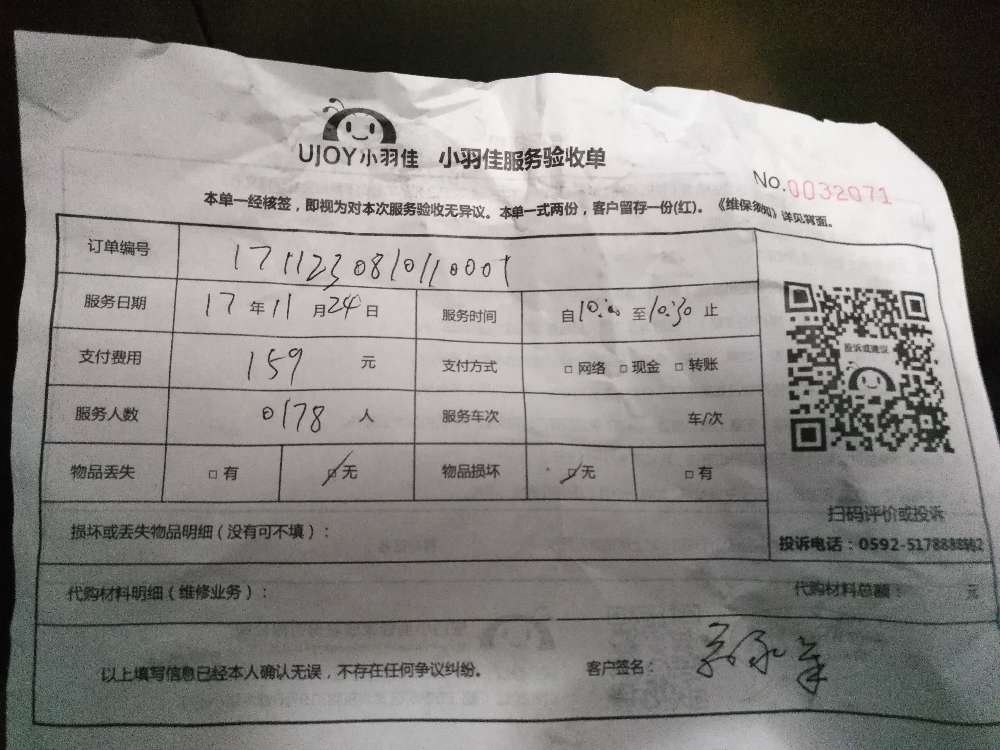 UJOY小羽佳 小羽佳服务验收单
No.0032071
本单一经核签，即视为对本次服务验收无异议。本单一式两份，客户留存一份(红)。《维保须知》详见背面。
订单编号 1711230810110001
服务日期 17年11月24日 服务时间 自10:00至10:30止
支付费用 159 元 支付方式 □网络 □现金 □转账
投诉或建议
服务人数 0178 人 服务车次 车/次
物品丢失 □有 □无 物品损坏 □无 □有
扫码评价或投诉
损坏或丢失物品明细（没有可不填）：
投诉电话：0592-5178888转2
代购材料明细（维修业务）： 代购材料总额： 元
以上填写信息已经本人确认无误，不存在任何争议纠纷。 客户签名：